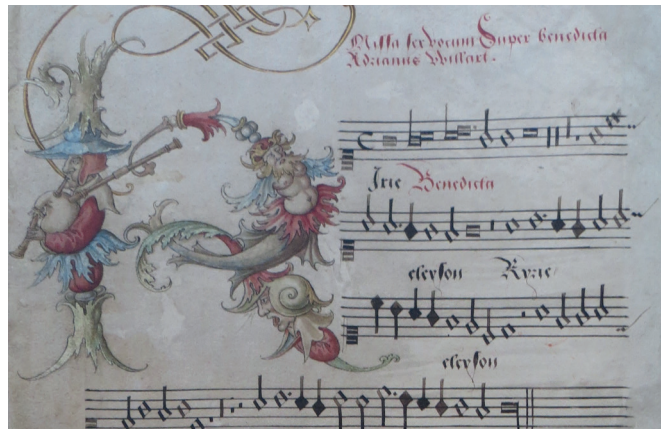 Missa sex vocum Super benedicta
Adrianus Willart.
Irie Benedicta
eleyson Kyrie
eleyson